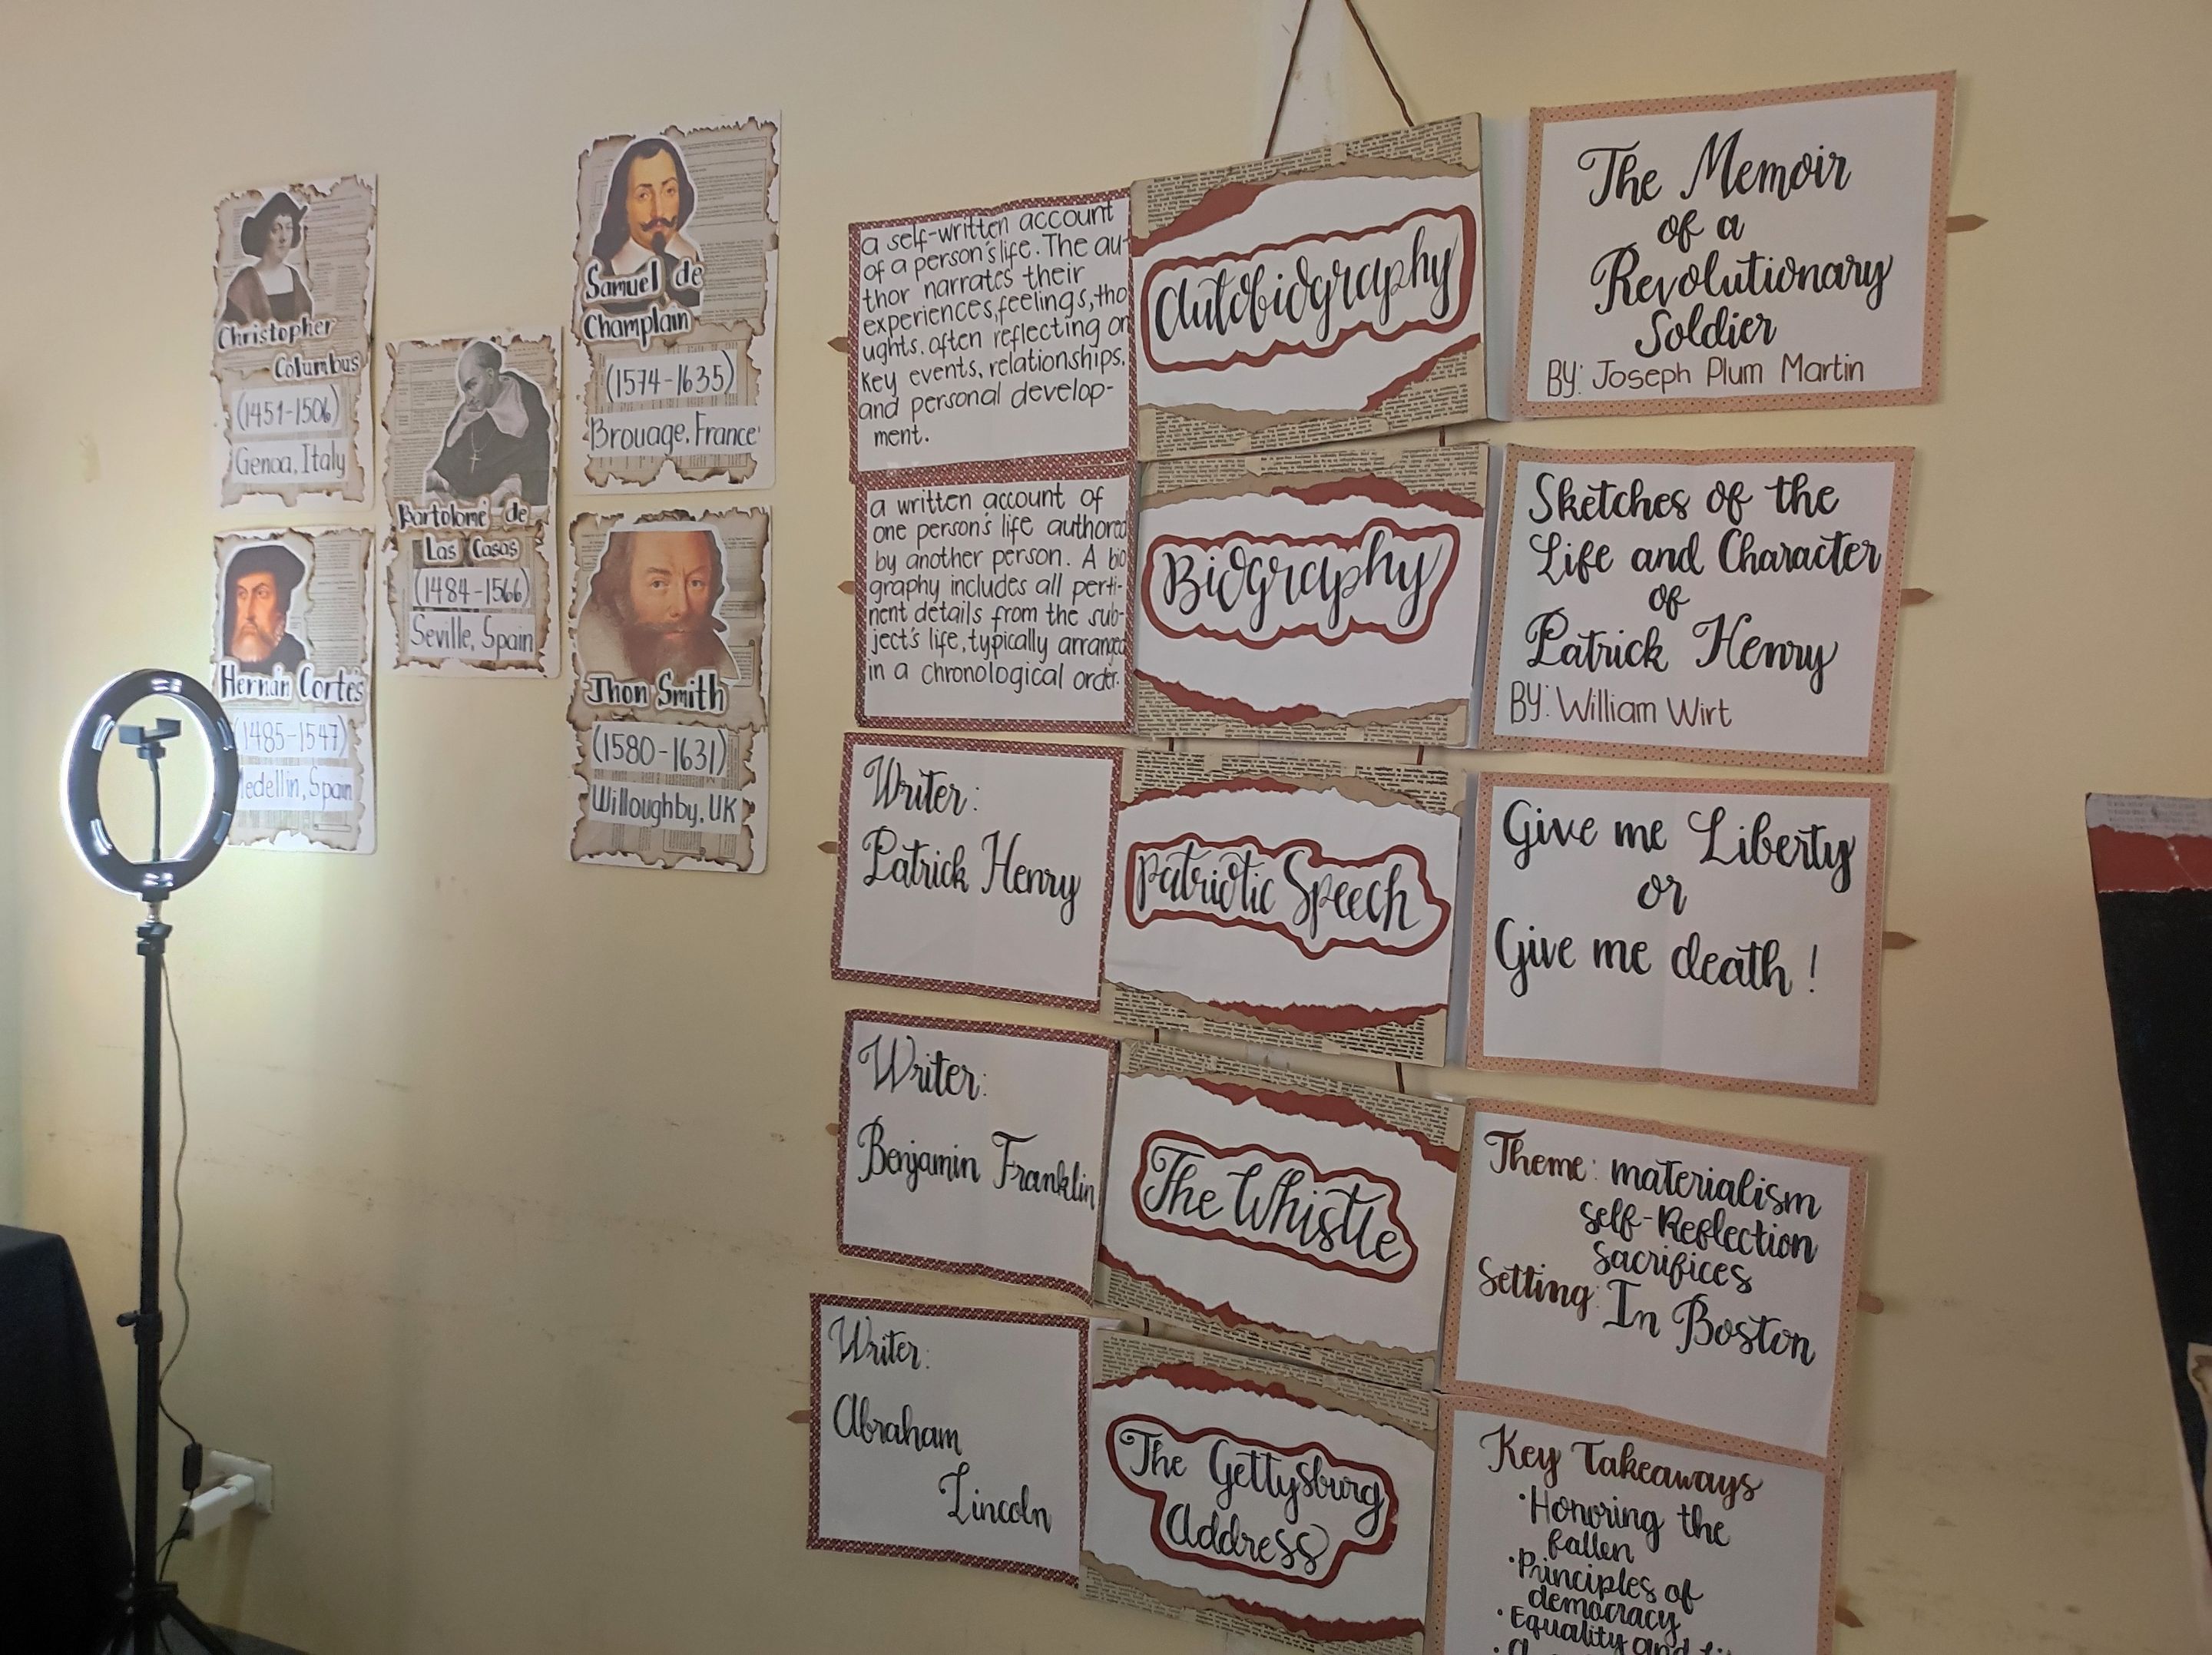 Christopher
Columbus
(1451-1506)
Genoa, Italy
Hernán Cortés
(1485-1547)
Medellin, Spain
Bartolomé de
Las Casas
(1484-1566)
Seville, Spain
Samuel de
Champlain
(1574-1635)
Brouage, France
Jhon Smith
(1580-1631)
Willoughby, UK
a self-written account
of a person's life. The au-
thor narrates their
experiences, feelings, tho
ughts. often reflecting on
key events, relationships.
and personal develop-
ment.
Autobiography
The Memoir
of a
Revolutionary
Soldier
BY: Joseph Plum Martin
a written account of
one person's life authored
by another person. A bio
graphy includes all perti-
nent details from the sub-
ject's life, typically arranged
in a chronological order.
Biography
Sketches of the
Life and Character
of
Patrick Henry
BY: William Wirt
Writer:
Patrick Henry
Patriotic Speech
Give me Liberty
or
Give me death!
Writer:
Benjamin Franklin
The Whistle
Theme: materialism
self-Reflection
sacrifices
Setting: In Boston
Writer:
Abraham
Lincoln
The Gettysburg
Address
Key Takeaways
• Honoring the
fallen
• Principles of
democracy
• Equality and